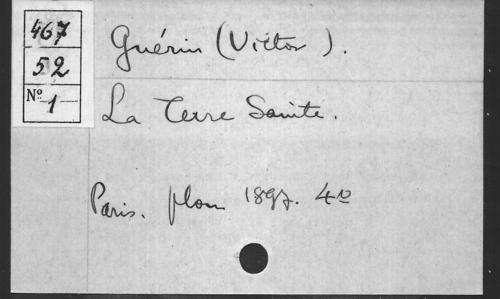 467
52
Nº 1
Guérin (Victor).
La Terre Sainte.
Paris. plon 1897. 4º